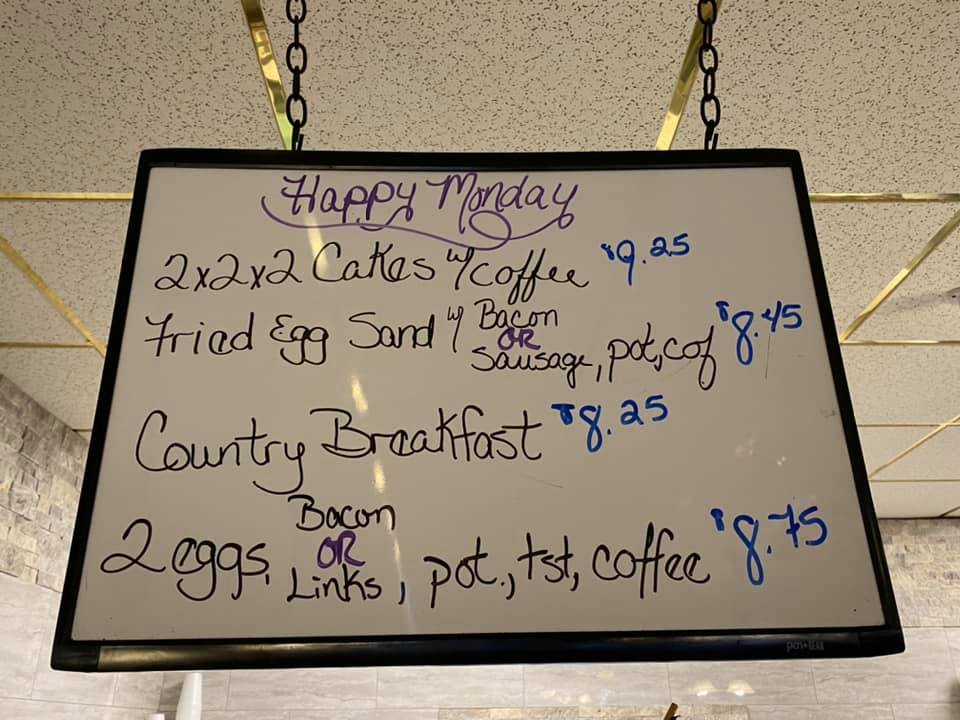 Happy Monday
2x2x2 Cakes w/ coffee $9.25
Fried Egg Sand w/ Bacon OR Sausage, pot, cof $8.45
Country Breakfast $8.25
2 eggs, Bacon OR Links, pot., tst, coffee $8.75